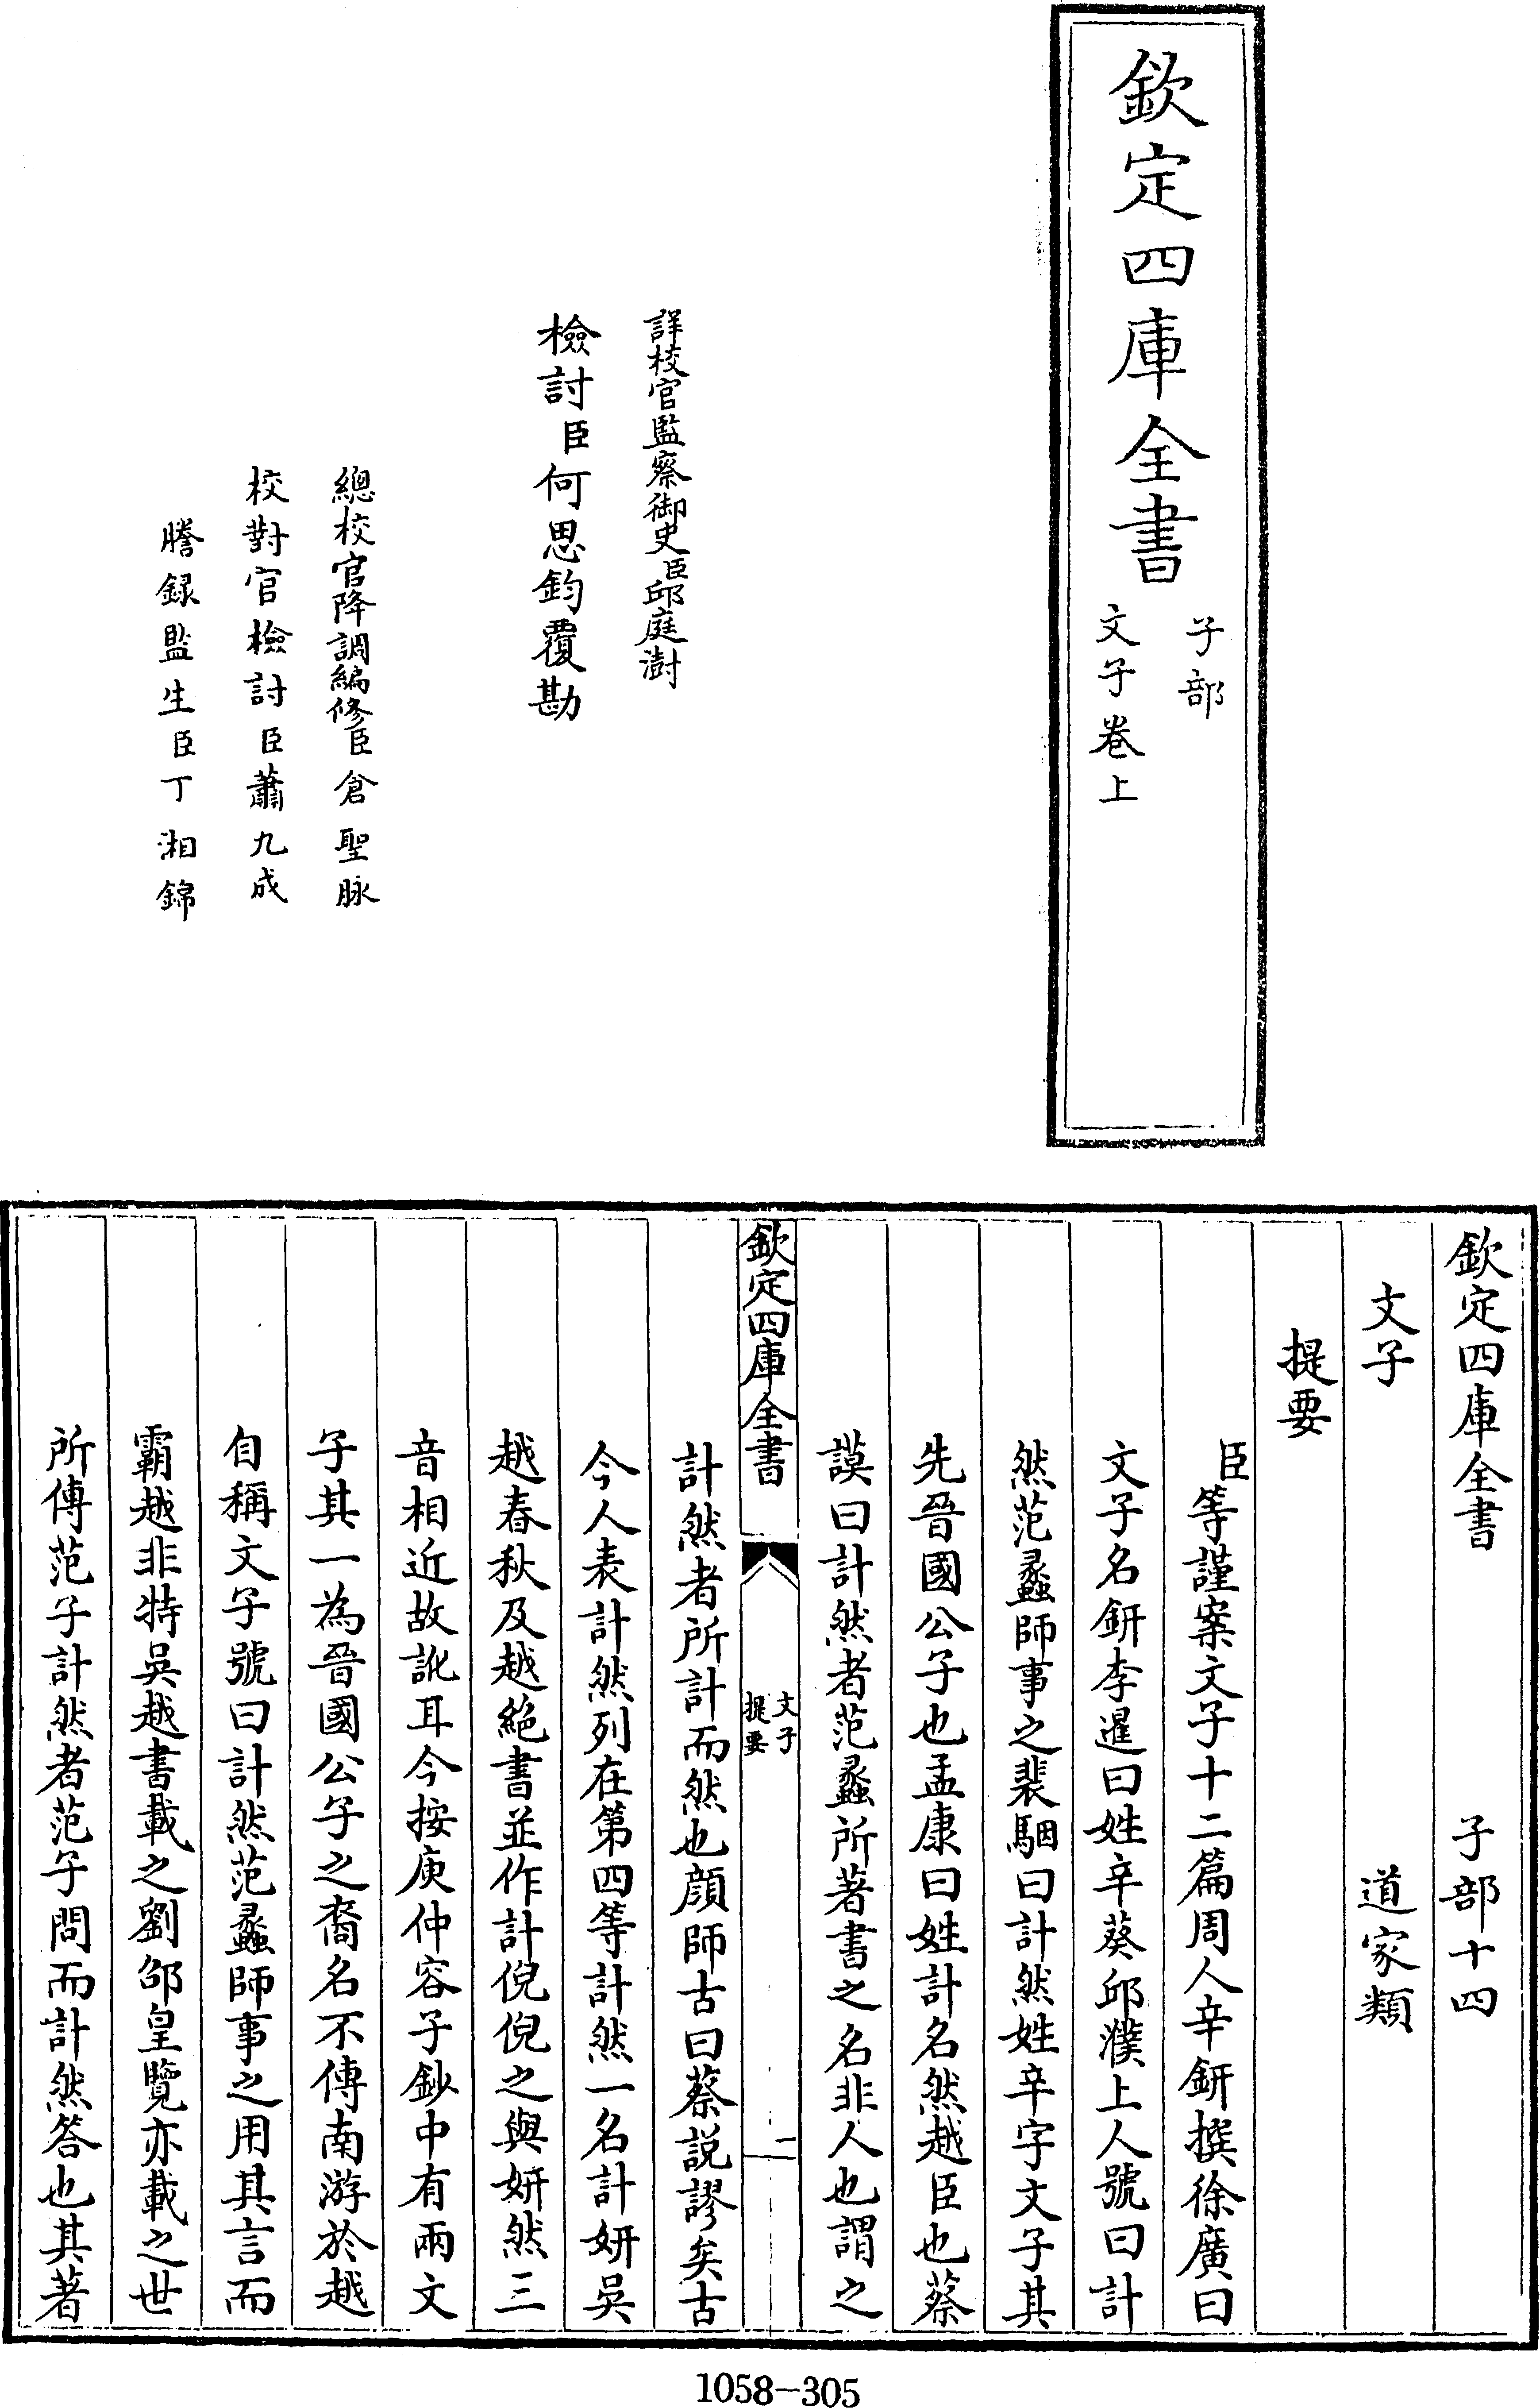 欽定四庫全書
子部
文子卷上
詳校官監察御史臣邱庭澍
檢討臣何思鈞覆勘
總校官降調編修臣倉聖脉
校對官檢討臣蕭九成
謄録監生臣丁湘錦
欽定四庫全書 子部十四
文子 道家類
提要
臣等謹案文子十二篇周人辛鈃撰徐廣曰
文子名鈃李暹曰姓辛葵邱濮上人號曰計
然范蠡師事之裴駰曰計然姓辛字文子其
先晉國公子也孟康曰姓計名然越臣也蔡
謨曰計然者范蠡所著書之名非人也謂之
欽定四庫全書
文子
提要
一
計然者所計而然也顔師古曰蔡説謬矣古
今人表計然列在第四等計然一名計妍吳
越春秋及越絶書並作計倪倪之與妍然三
音相近故訛耳今按庾仲容子鈔中有兩文
子其一為晉國公子之裔名不傳南游於越
自稱文子號曰計然范蠡師事之用其言而
霸越非特吳越書載之劉邵皇覽亦載之世
所傳范子計然者范子問而計然答也其著
1058-305